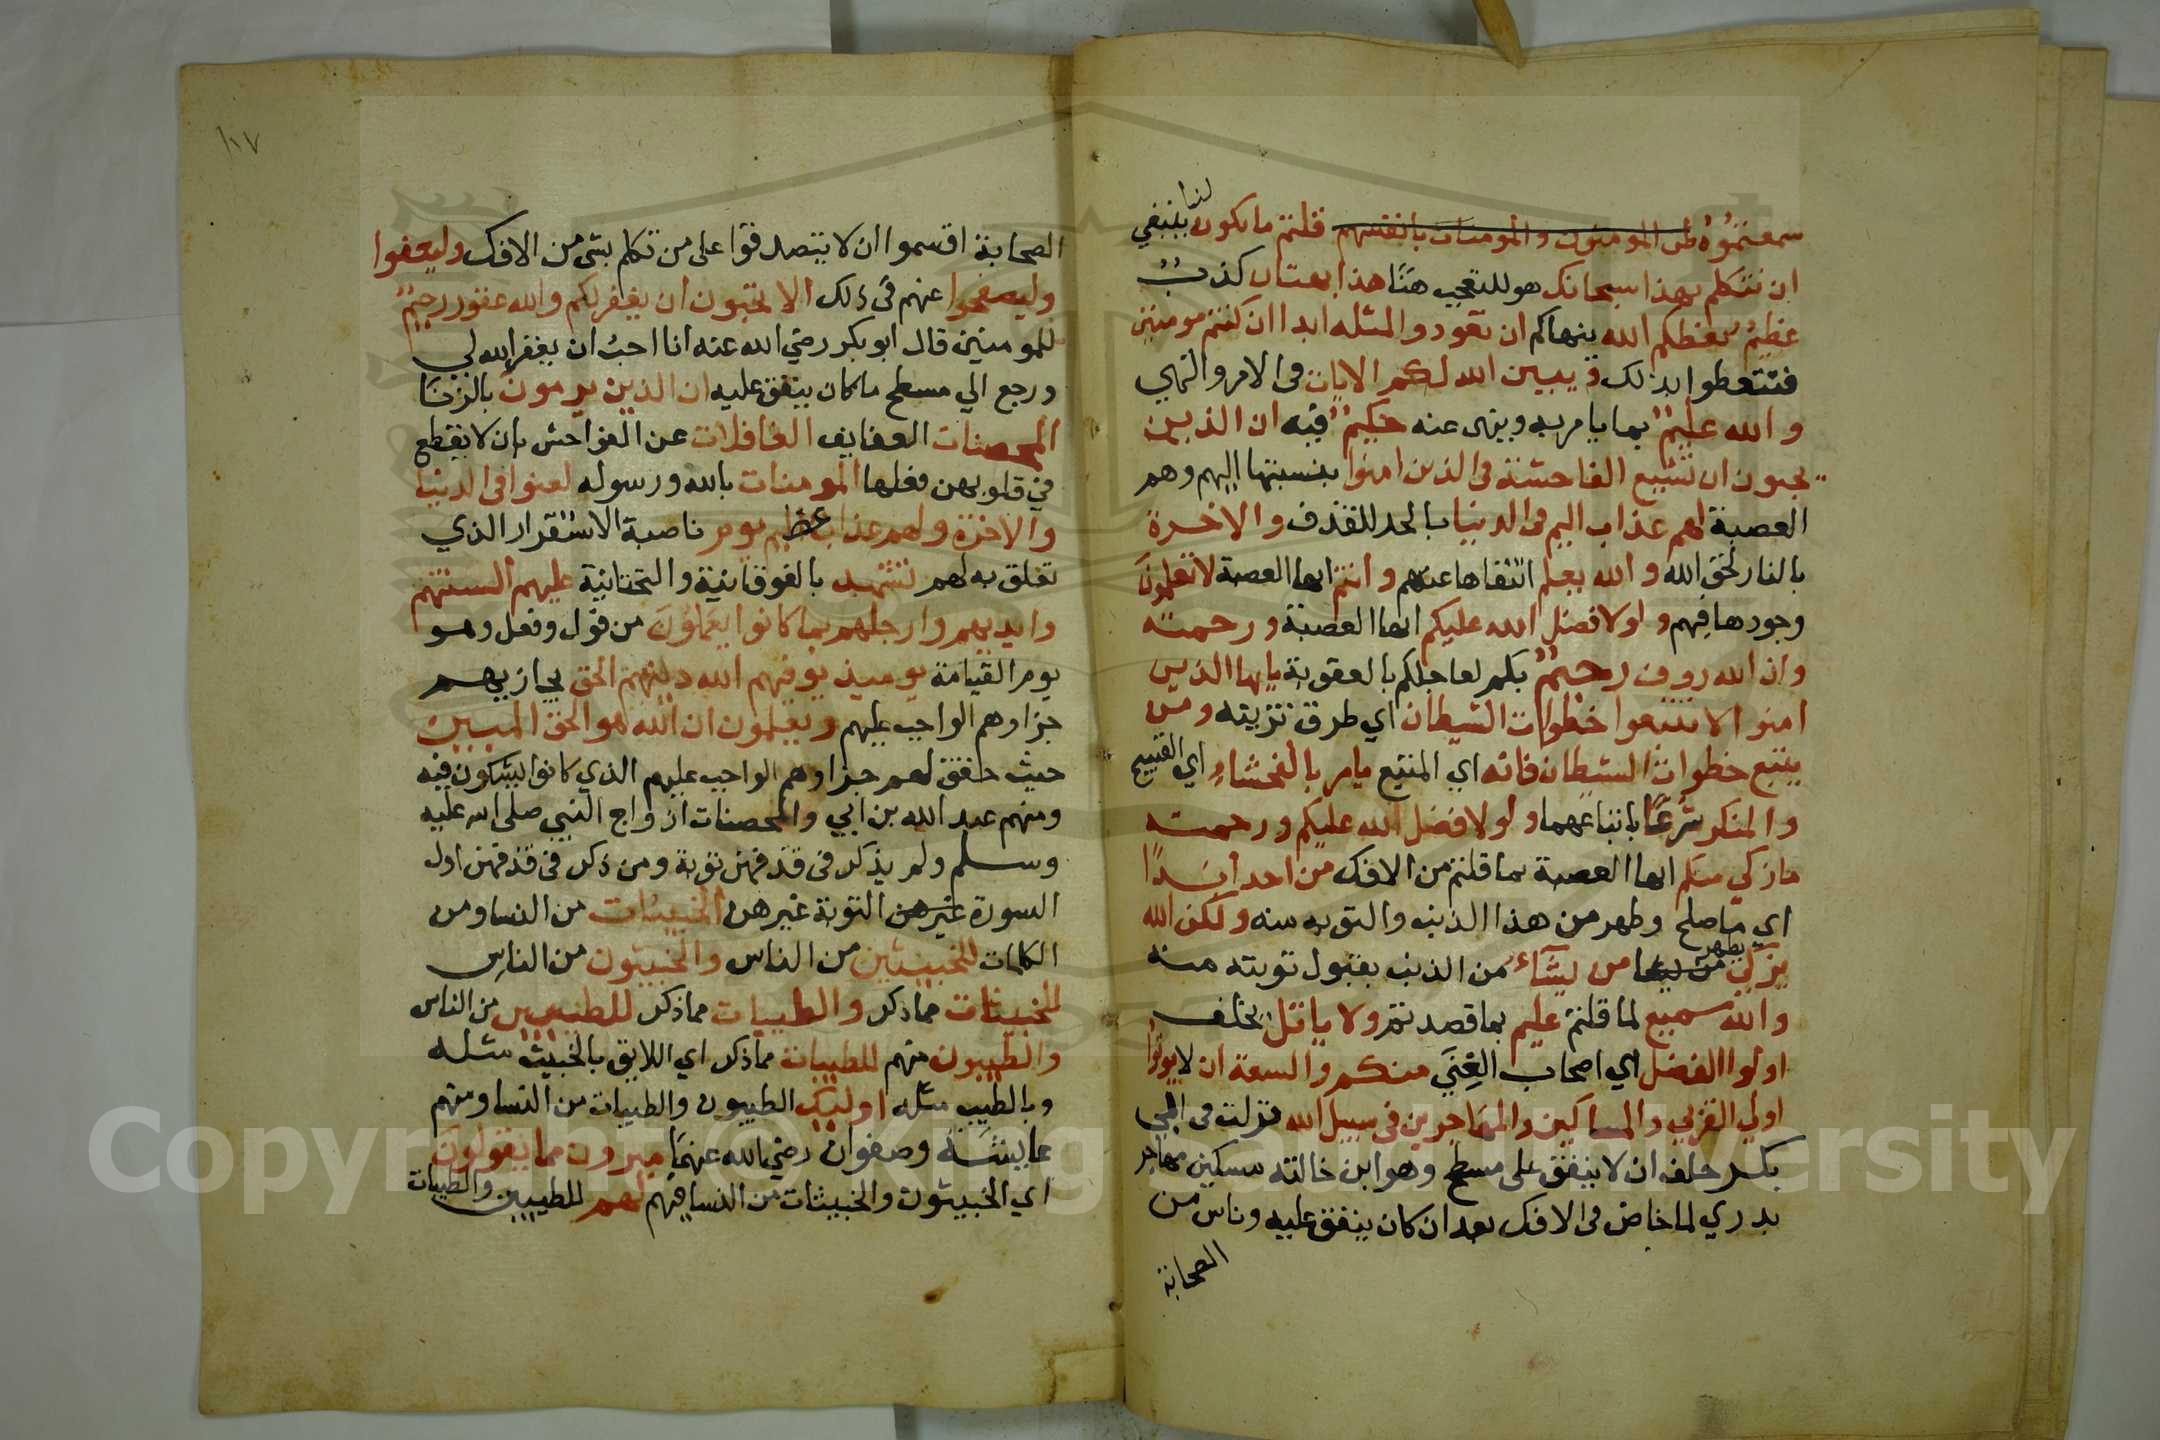 سمعتموه ظن المومنون والمومنات بانفسهم قلتم ما يكون لنا ينبغي
ان نتكلم بهذا سبحانك هو للتعجب هنا هذا بهتان كذب
عظيم يعظكم الله ينهاكم ان تعودوا لمثله ابدا ان كنتم مومنين
فتتعظوا بذلك ويبين الله لكم الايات في الامر والنهي
والله عليم بما يامر به وينهى عنه حكيم فيه ان الذين
يحبون ان تشيع الفاحشة في الذين امنوا بنسبتها اليهم وهم
العصبة لهم عذاب اليم في الدنيا بالحد للقذف والاخرة
بالنار لحق الله والله يعلم انتفاها عنهم وانتم ايها العصبة لا تعلمون
وجودها فيهم ولولا فضل الله عليكم ايها العصبة ورحمته
وان الله روف رحيم بكم لعاجلكم بالعقوبة يايها الذين
امنوا لا تتبعوا خطوات الشيطان اي طرق تزيينه ومن
يتبع خطوات الشيطان فانه اي المتبع يامر بالفحشاء اي القبيح
والمنكر شرعا باتباعهما ولولا فضل الله عليكم ورحمته
ما زكي منكم ايها العصبة بما قلتم من الافك من احد ابدا
اي ما صلح وطهر من هذا الذنب والتوبه منه ولكن الله
يزكي يطهر من يشاء من الذنب بقبول توبته منه
والله سميع لما قلتم عليم بما قصدتم ولا ياتل يحلف
اولوا الفضل اي اصحاب الغنى منكم والسعة ان لا يوتوا
اولي القربي والمساكين والمهاجرين في سبيل الله نزلت في ابي
بكر حلف ان لا ينفق على مسطح وهو ابن خالته مسكين مهاجر
بدري لما خاض في الافك بعد ان كان ينفق عليه وناس من
الصحابة
١١٧
الصحابة اقسموا ان لا يتصدقوا على من تكلم بشي من الافك وليعفوا
وليصفحوا عنهم في ذلك الا تحبون ان يغفر الله لكم والله غفور رحيم
للمومنين قال ابو بكر رضي الله عنه انا احب ان يغفر الله لي
ورجع الي مسطح ما كان ينفق عليه ان الذين يرمون بالزنا
المحصنات العفايف الغافلات عن الفواحش بان لا يقع
في قلوبهن فعلها المومنات بالله ورسوله لعنوا في الدنيا
والاخرة ولهم عذاب عظيم يوم ناصبة الاستقرار الذي
تعلق به لهم تشهد بالفوقانية والتحتانية عليهم السنتهم
وايديهم وارجلهم بما كانوا يعملون من قول وفعل وهو
يوم القيامة يوميذ يوفيهم الله دينهم الحق يجازيهم
جزاوهم الواجب عليهم ويعلمون ان الله هو الحق المبين
حيث حقق لهم جزاوهم الواجب عليهم الذي كانوا يشكون فيه
ومنهم عبد الله بن ابي والمحصنات ازواج النبي صلى الله عليه
وسلم ولم يذكر في قذفهن توبة ومن ذكر في قذفهن اول
السورة غيرهن التوبة غيرهن الخبيثات من النسا ومن
الكلمات للخبيثين من الناس والخبيثون من الناس
للخبيثات مما ذكر والطيبات مما ذكر للطيبين من الناس
والطيبون منهم للطيبات مما ذكر اي اللايق بالخبيث مثله
وبالطيب مثله اوليك الطيبون والطيبات من النسا ومنهم
عايشة وصفوان رضي الله عنهما مبرون مما يقولون
اي الخبيثون والخبيثات من النسا فيهم لهم للطيبين والطيبات
Copyright © King Saud University